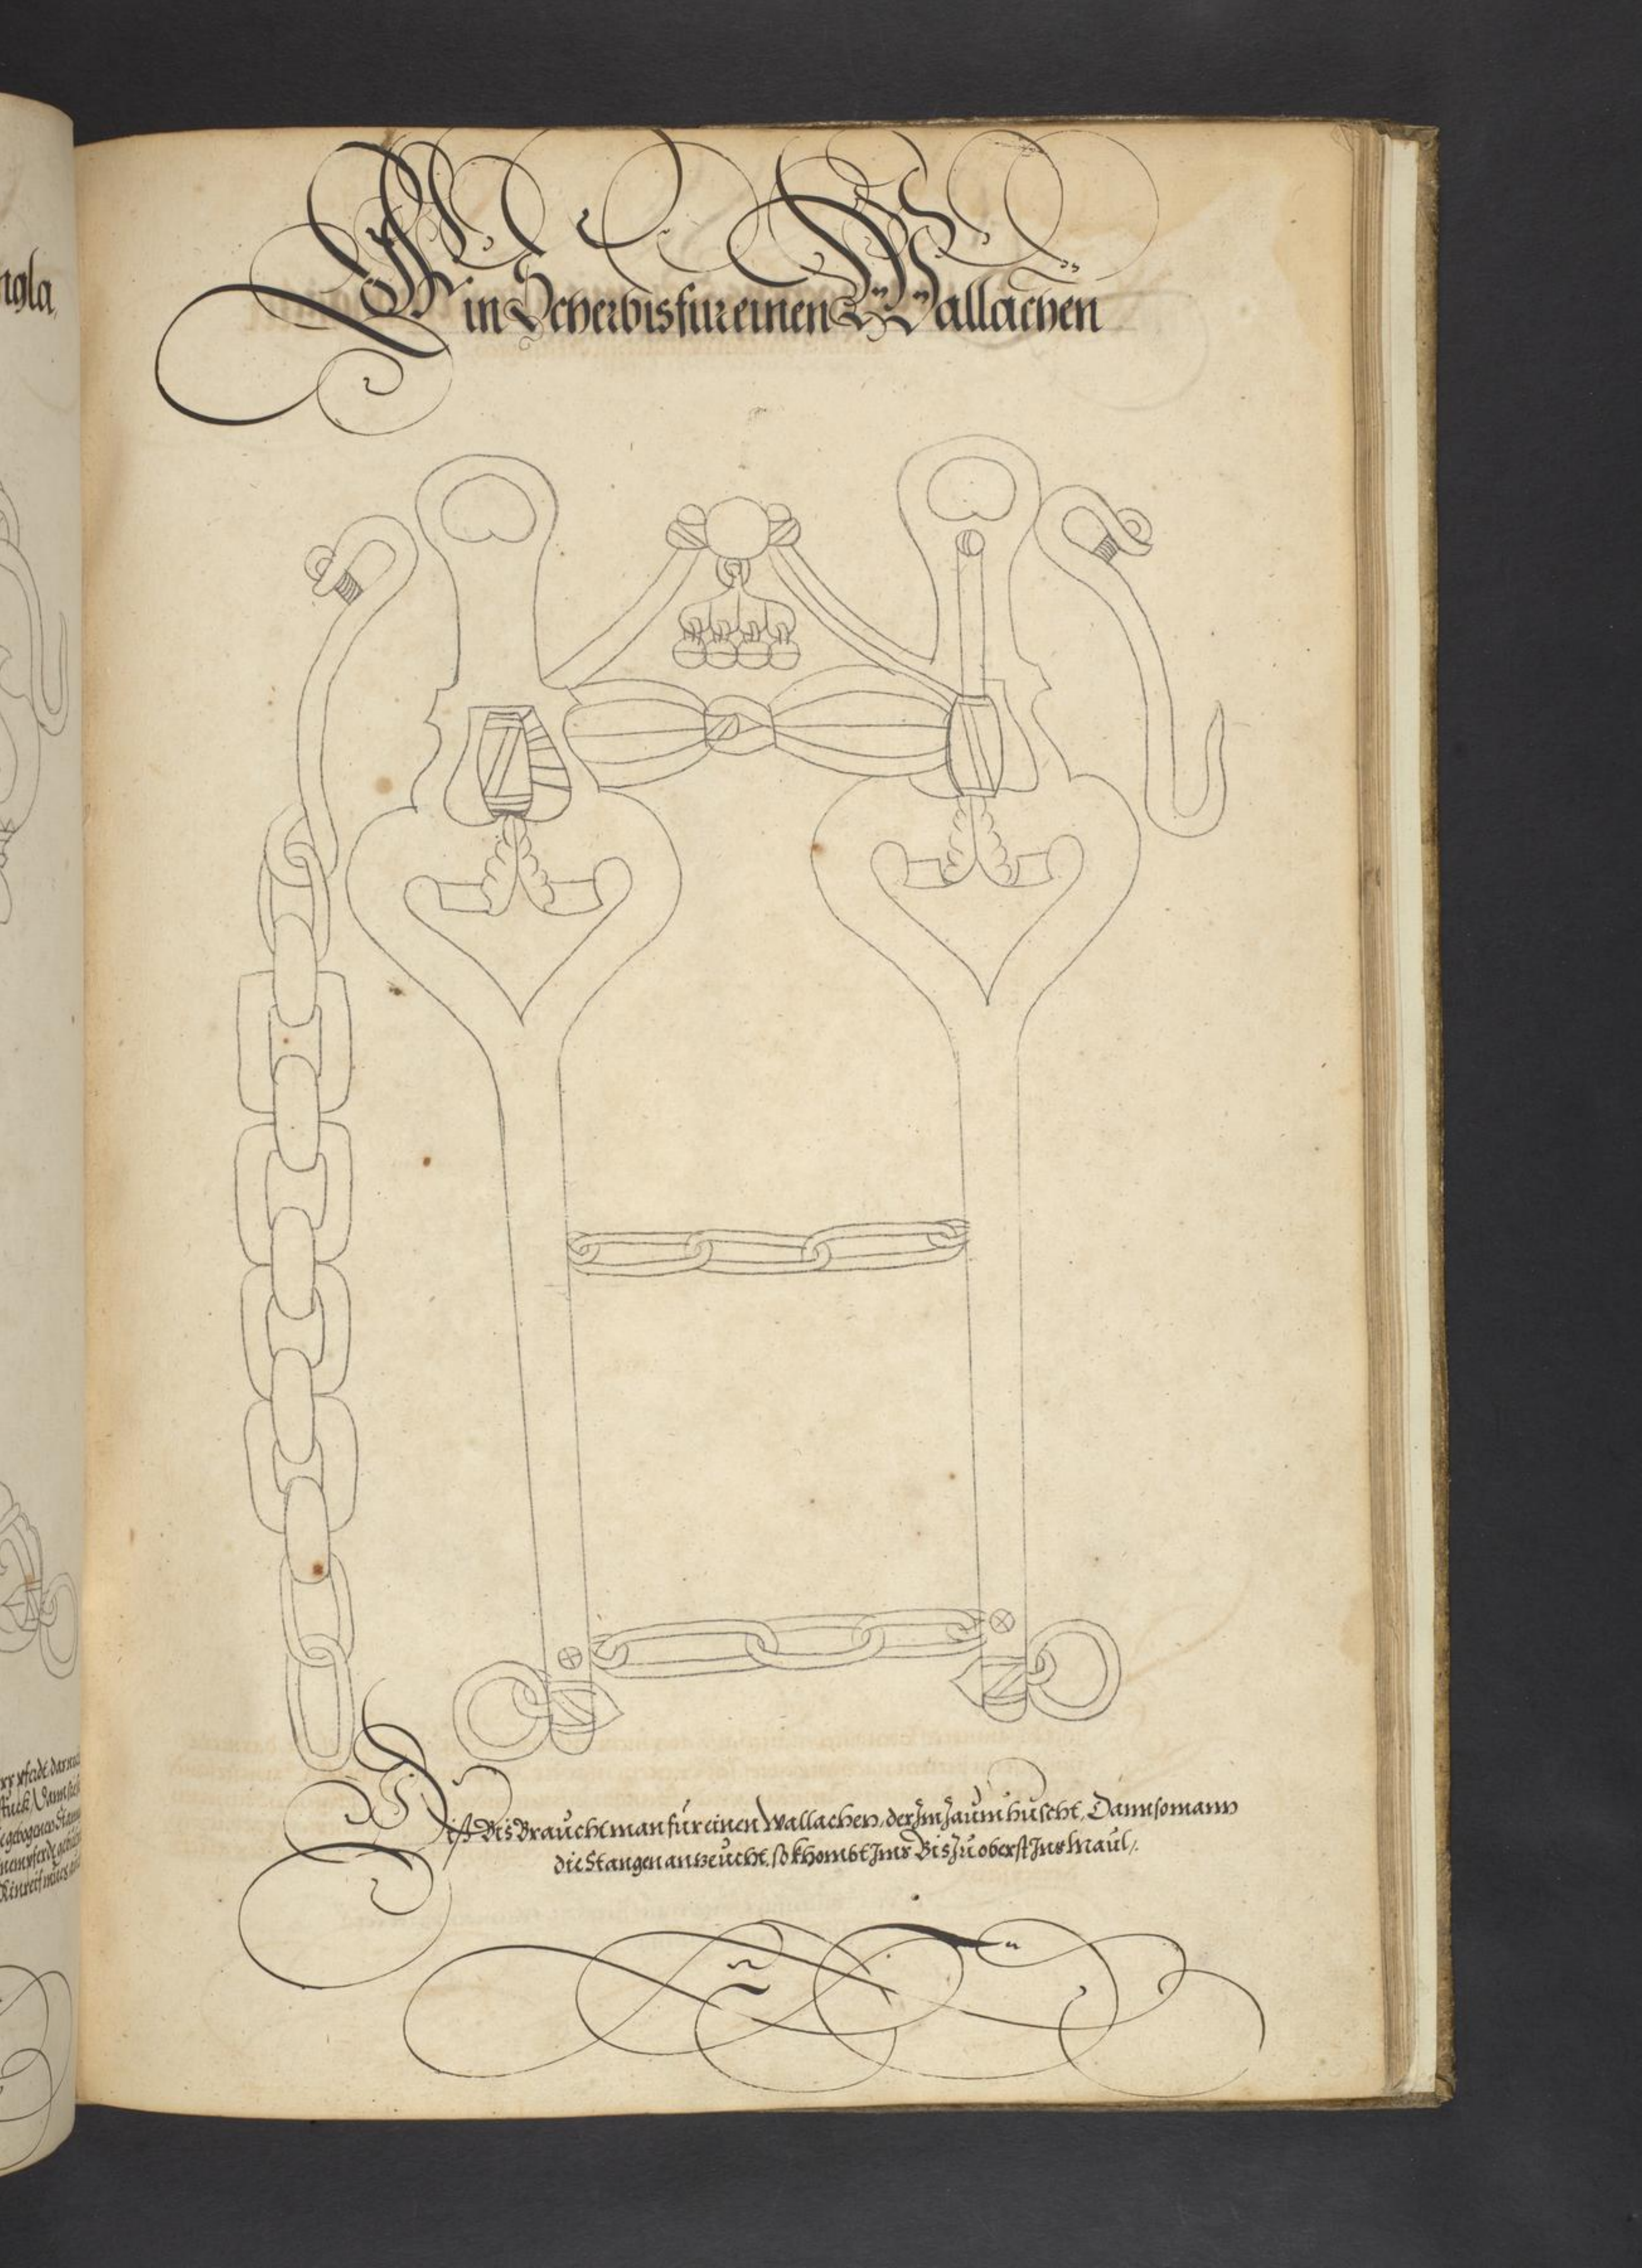 Ein Scherbis fur einen Wallachen
Dis Bis Braucht man für einen Wallachen, der Im Zaum huscht, Dann so mann
die Stangen anzeucht, so khombt Ims Bis zu oberst Ins Maul
ngla